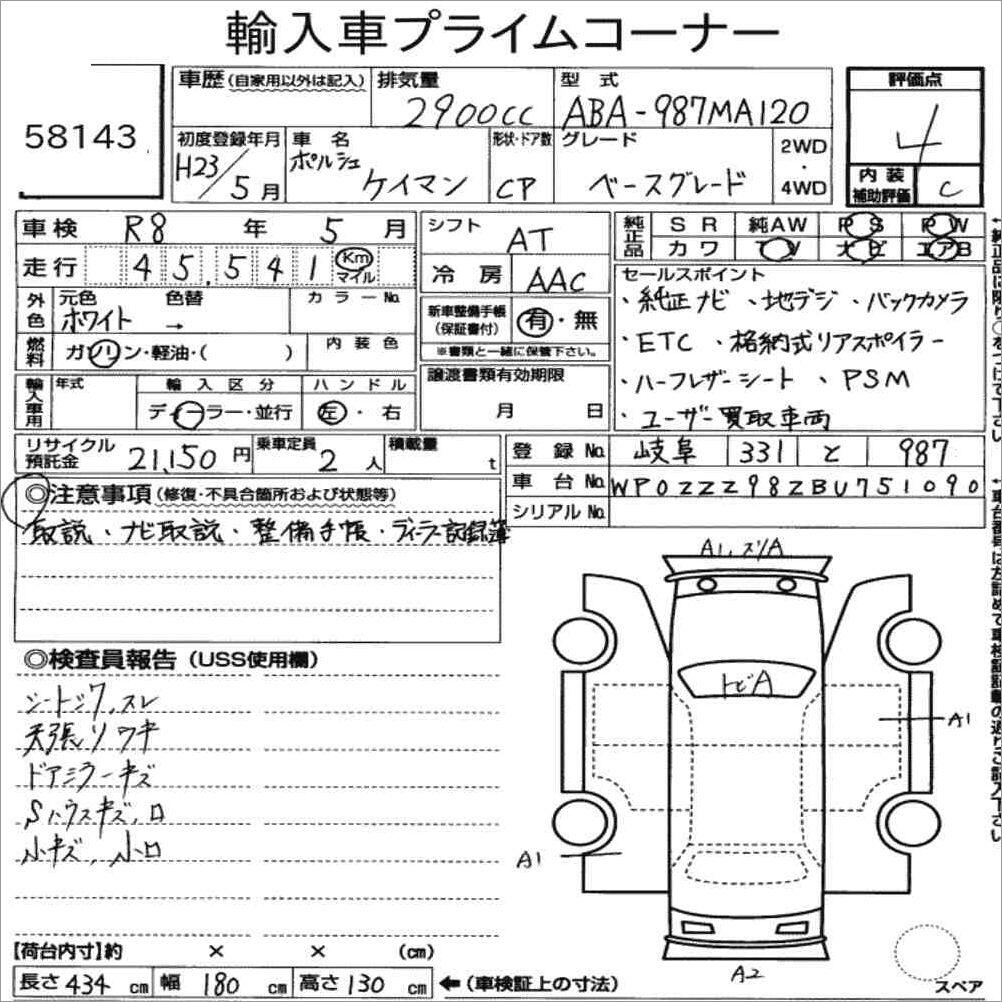 輸入車プライムコーナー
58143
車歴(自家用以外は記入) 排気量 2900cc 型式 ABA-987MA120 評価点 4
初度登録年月 H23/5月 車名 ポルシェ ケイマン 形状・ドア数 CP グレード ベースグレード 2WD・4WD 内装補助評価 C
車検 R8年 5月 シフト AT 純正品 SR 純AW PS PW
走行 45,541 Km マイル 冷房 AAC カワ TV ナビ エアB
外色 元色 ホワイト 色替 → カラーNo. 新車整備手帳(保証書付) 有・無
燃料 ガソリン・軽油・( ) 内装色 ※書類と一緒に保管下さい。
輸入車用 年式 輸入区分 ディーラー・並行 ハンドル 左・右 譲渡書類有効期限 月 日
セールスポイント
・純正ナビ、地デジ・バックカメラ
・ETC・格納式リアスポイラー
・ハーフレザーシート、PSM
・ユーザー買取車両
リサイクル預託金 21,150円 乗車定員 2人 積載量 t 登録No. 岐阜 331 と 987
車台No. WP0ZZZ98ZBU751090
シリアルNo.
◎注意事項(修復・不具合箇所および状態等)
取説・ナビ取説・整備手帳・ディーラー記録簿
◎検査員報告(USS使用欄)
シートシワ,スレ
天張りワキ
ドアミラーキズ
Sハウスキズ,ロ
小キズ,小ロ
A1,スリA
トビA
A1
A1
A2
【荷台内寸】約 × × (cm)
長さ 434 cm 幅 180 cm 高さ 130 cm ←(車検証上の寸法) スペア